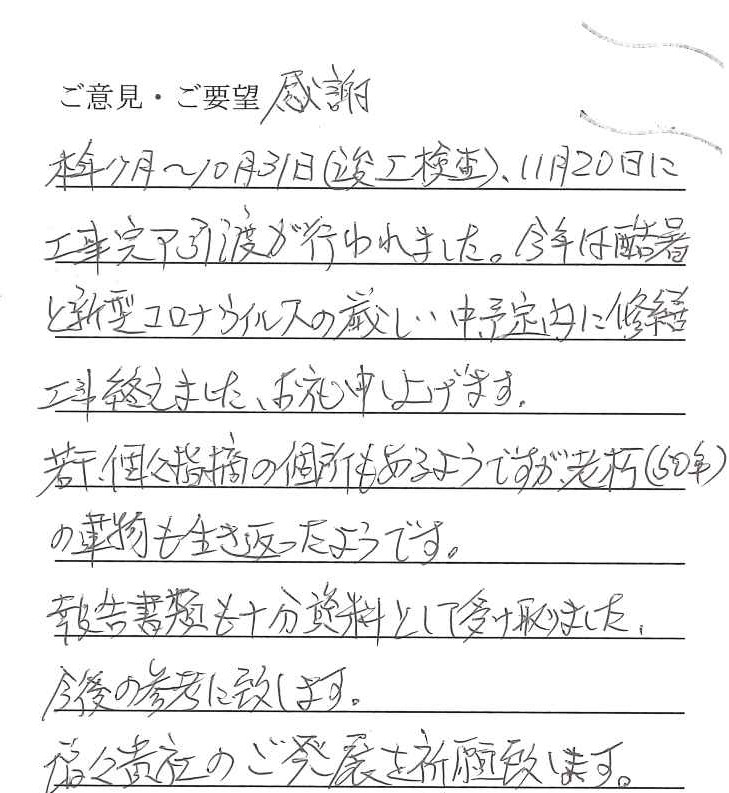 ご意見・ご要望 感謝
本年7月〜10月31日(竣工検査)、11月20日に
工事完了引渡が行われました。今年は酷暑
と新型コロナウイルスの厳しい中予定内に修繕
工事終えました、お礼申し上げます。
若干、個々指摘の個所もあるようですが、老朽(50年)
の建物も生き返ったようです。
報告書類も十分資料として受け取りました、
今後の参考に致します。
益々貴社のご発展を祈願致します。